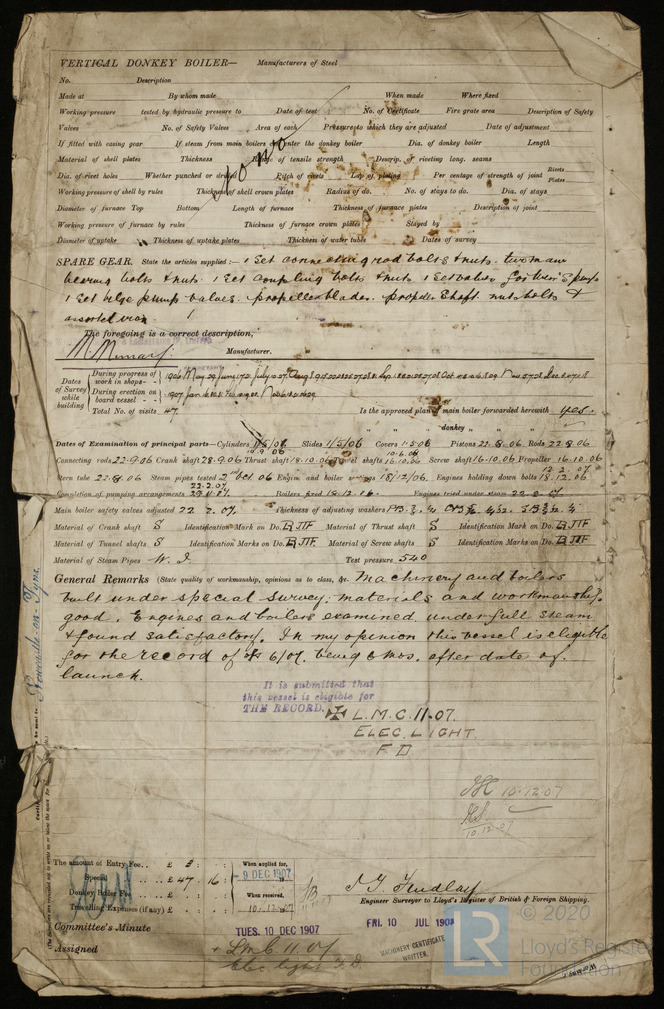 VERTICAL DONKEY BOILER— Manufacturers of Steel
No. Description
Made at By whom made When made Where fixed
Working pressure tested by hydraulic pressure to Date of test No. of Certificate Fire grate area Description of Safety
Valves No. of Safety Valves Area of each Pressure to which they are adjusted Date of adjustment
If fitted with easing gear If steam from main boilers can enter the donkey boiler Dia. of donkey boiler Length
Material of shell plates Thickness Range of tensile strength Descrip. of riveting long. seams
Dia. of rivet holes Whether punched or drilled Pitch of rivets Lap of plating Per centage of strength of joint Rivets Plates
Working pressure of shell by rules Thickness of shell crown plates Radius of do. No. of stays to do. Dia. of stays
Diameter of furnace Top Bottom Length of furnace Thickness of furnace plates Description of joint
Working pressure of furnace by rules Thickness of furnace crown plates Stayed by
Diameter of uptake Thickness of uptake plates Thickness of water tubes Dates of survey
SPARE GEAR. State the articles supplied:— 1 set connecting rod bolts & nuts. two main
bearing bolts & nuts 1 set coupling bolts & nuts 1 set valves for
1 set bilge pump valves. propeller blades. propeller shaft. nuts bolts &
assorted iron
The foregoing is a correct description,
Manufacturer.
Dates of Survey while building
During progress of work in shops - -
During erection on board vessel - -
Total No. of visits 47.
Is the approved plan of main boiler forwarded herewith yes.
" " " donkey " " "
Dates of Examination of principal parts—Cylinders 1/5/06 Slides 1/5/06 Covers 1.5.06 Pistons 22.8.06. Rods 22.8.06
Connecting rods 22.9.06 Crank shaft 28.9.06 Thrust shaft 18.10.06 Tunnel shafts 16.10.06 Screw shaft 16.10.06 Propeller 16.10.06
Stern tube 22.8.06 Steam pipes tested Engine and boiler seatings 18/12/06. Engines holding down bolts 18.12.06
Completion of pumping arrangements Boilers fixed 18.12.06. Engines tried under steam
Main boiler safety valves adjusted 22.2.07. Thickness of adjusting washers
Material of Crank shaft S Identification Mark on Do. Material of Thrust shaft S Identification Mark on Do.
Material of Tunnel shafts S Identification Marks on Do. Material of Screw shafts S Identification Marks on Do.
Material of Steam Pipes W. I. Test pressure 540
General Remarks (State quality of workmanship, opinions as to class, &c. Machinery and boilers
built under special survey; materials and workmanship
good. Engines and boilers examined under full steam
& found satisfactory. In my opinion this vessel is eligible
for the record of 6/07. being 6 mos. after date of
launch.
Newcastle-on-Tyne.
It is submitted that
this vessel is eligible for
THE RECORD. L.M.C. 11.07.
ELEC. LIGHT.
F D
10.12.07
10.12.07
The amount of Entry Fee.. £ 3 : :
Special .. .. £ 47 : 16 :
Donkey Boiler Fee .. £ : :
Travelling Expenses (if any) £ : :
When applied for,
9 DEC 1907
When received,
10.12.1907
J. G. Findlay
Engineer Surveyor to Lloyd's Register of British & Foreign Shipping.
Committee's Minute TUES. 10 DEC 1907 FRI. 10 JUL 1908
Assigned + LMC 11.07
Elec light F.D.
MACHINERY CERTIFICATE
WRITTEN.
© 2020
LR
Lloyd's Register
Foundation